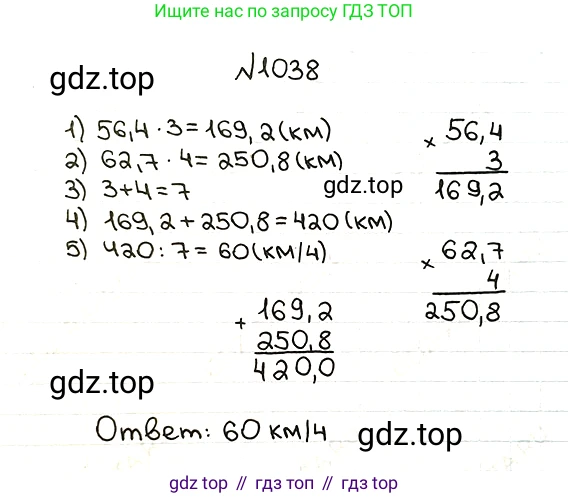 Ищите нас по запросу ГДЗ ТОП
gdz.top
№1038
1) 56,4 · 3 = 169,2 (км)
2) 62,7 · 4 = 250,8 (км)
3) 3+4=7
4) 169,2 + 250,8 = 420 (км)
5) 420 : 7 = 60 (км/ч)
× 56,4
3
169,2
gdz.top
× 62,7
4
250,8
+ 169,2
250,8
420,0
gdz.top
Ответ: 60 км/ч
gdz.top
gdz.top // гдз топ // гдз топ